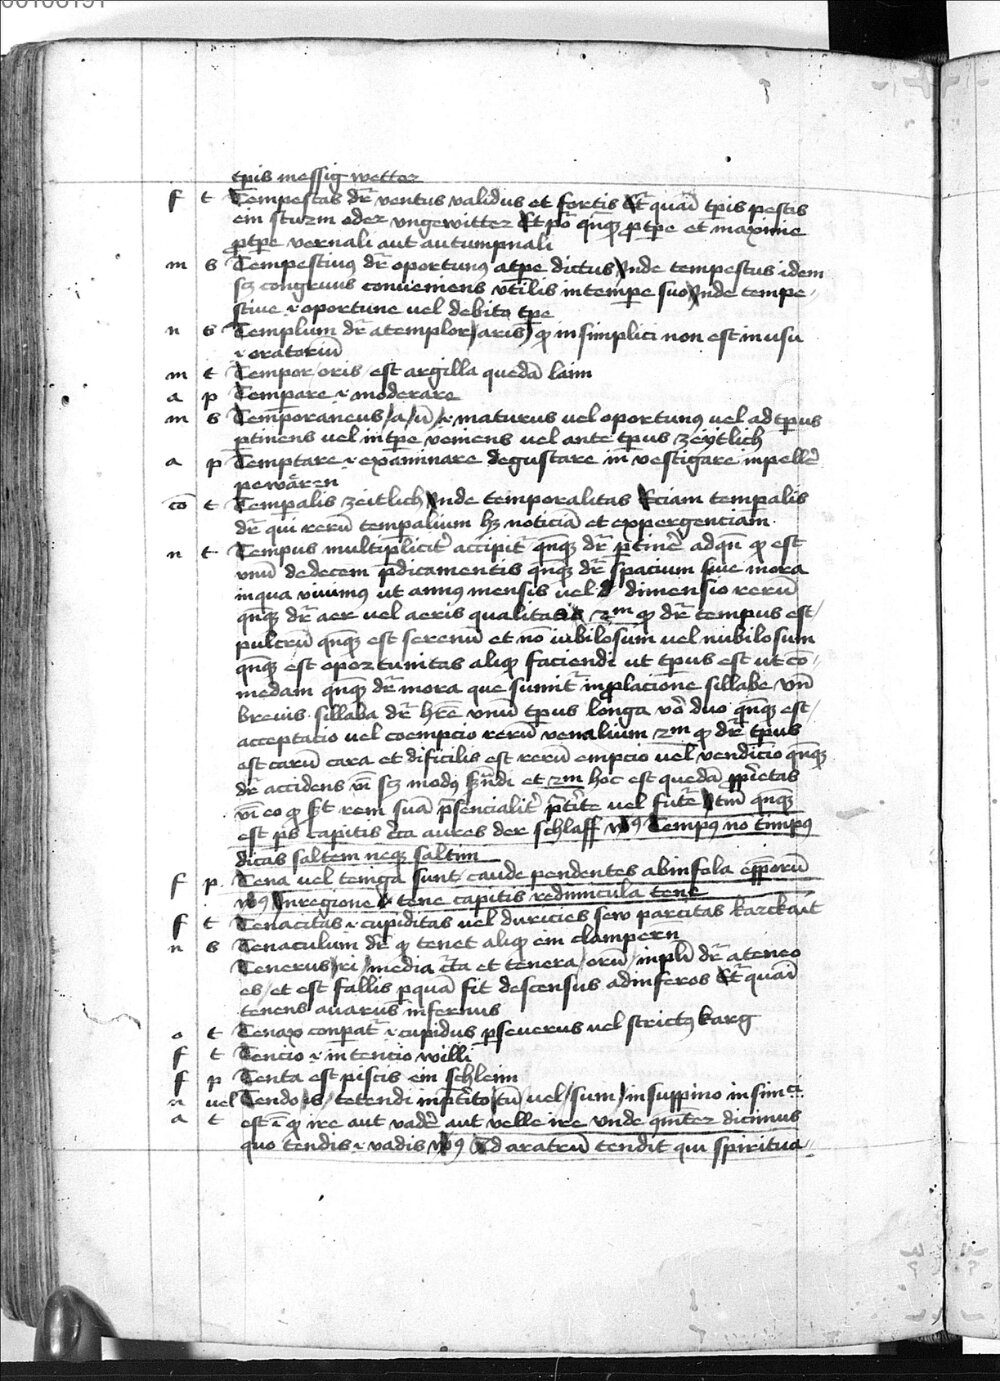 00100191
tp̄is messig wetter
f t Tempestas dr̄ ventus validus et fortis Et dr̄ quasi tp̄is pestis
ein sturm oder ungewitter Et po qn̄qz p tp̄e et maxime
p tp̄e vernali aut autumpnali
m s Tempestivus dr̄ oportunus a tp̄e dictus Unde tempestus idem
sz congruus conveniens utilis in temp̄e suo Unde tempe
stive .i. oportune vel debito tp̄e
n s Templum dr̄ a templor / aris / qz in simplici non est in usu
.i. oratoriū
m t Tempor / oris / est argilla quedā laim
a p Temp̄are .i. moderare
m s Temporaneus / a / ū / .i. maturus vel oportunus vel ad tp̄us
p̄tinens vel in tp̄e veniens vel ante tp̄us zeytlich
a p Temptare .i. examinare degustare investigare inpelle
pewären
cō t Temp̄alis zeitlich Unde temporalitas Eciam temp̄alis
dr̄ qui rerū temp̄alium hz noticiā et expergenciam
n t Tempus multiplicit̄ accipit̄ qn̄qz dr̄ p̄tine ad qn̄ qd est
unū de decem p̄dicamentis qn̄qz dr̄ spacium sive mora
in qua vivimus ut annus mensis vel dimensio rerū
qn̄qz dr̄ aer vel aeris qualitas 2m qd dr̄ tempus est
pulcrū qn̄qz est serenū et nō nubilosum vel nubilosum
qn̄qz est oportunitas aliqd faciendi ut tp̄us est ut cō
medam qn̄qz dr̄ mora que sumit̄ in p̄lacione sillabe Un̄
brevis sillaba dr̄ hr̄e unū tp̄us longa vo duo qn̄qz est
acceptacio vel coempcio rerū venalium 2m qd dr̄ tp̄us
est carū cara et dificilis est rerū empcio vel vendicio qn̄qz
dr̄ accidens v̄i sz modus sn̄di et 2m hoc est quedā pp̄rietas
v̄i eo qd sn̄t rem suā p̄sencialit̄ p̄tite vel future tm̄ qn̄qz
est ps capitis circa aures der schlaff v9 Tempus no timpus
dicas saltem neqz saltim
f p Tena vel teinga sunt caude pendentes ab infula ep̄porū
v9 In regione tene capitis redimicula tene
f t Tenacitas .i. cupiditas vel duricies sew parcitas karckait
n s Tenaculum dr̄ qd tenet aliqd ein clampern
Tenerus / ri / media c̄ta et tenera / orū / in pli dr̄ a teneo
es / et est fallis p quā fit descensus ad inferos Et dr̄ quasi
tenens avarus infernus
o t Tenax conpat̄ .i. cupidus p̄severus vel strictus karg
f t Tencio .i. intencio willi
f p Tenta est piscis ein schleim
n vel Tendo / is / tetendi in p̄tito / tū / vel / sum / in suppino in sim ci
a t est .i. qd ire aut vade aut velle ire Unde qn̄ter dicimus
quo tendis .i. vadis v9 Ad aratrū tendit qui spiritua